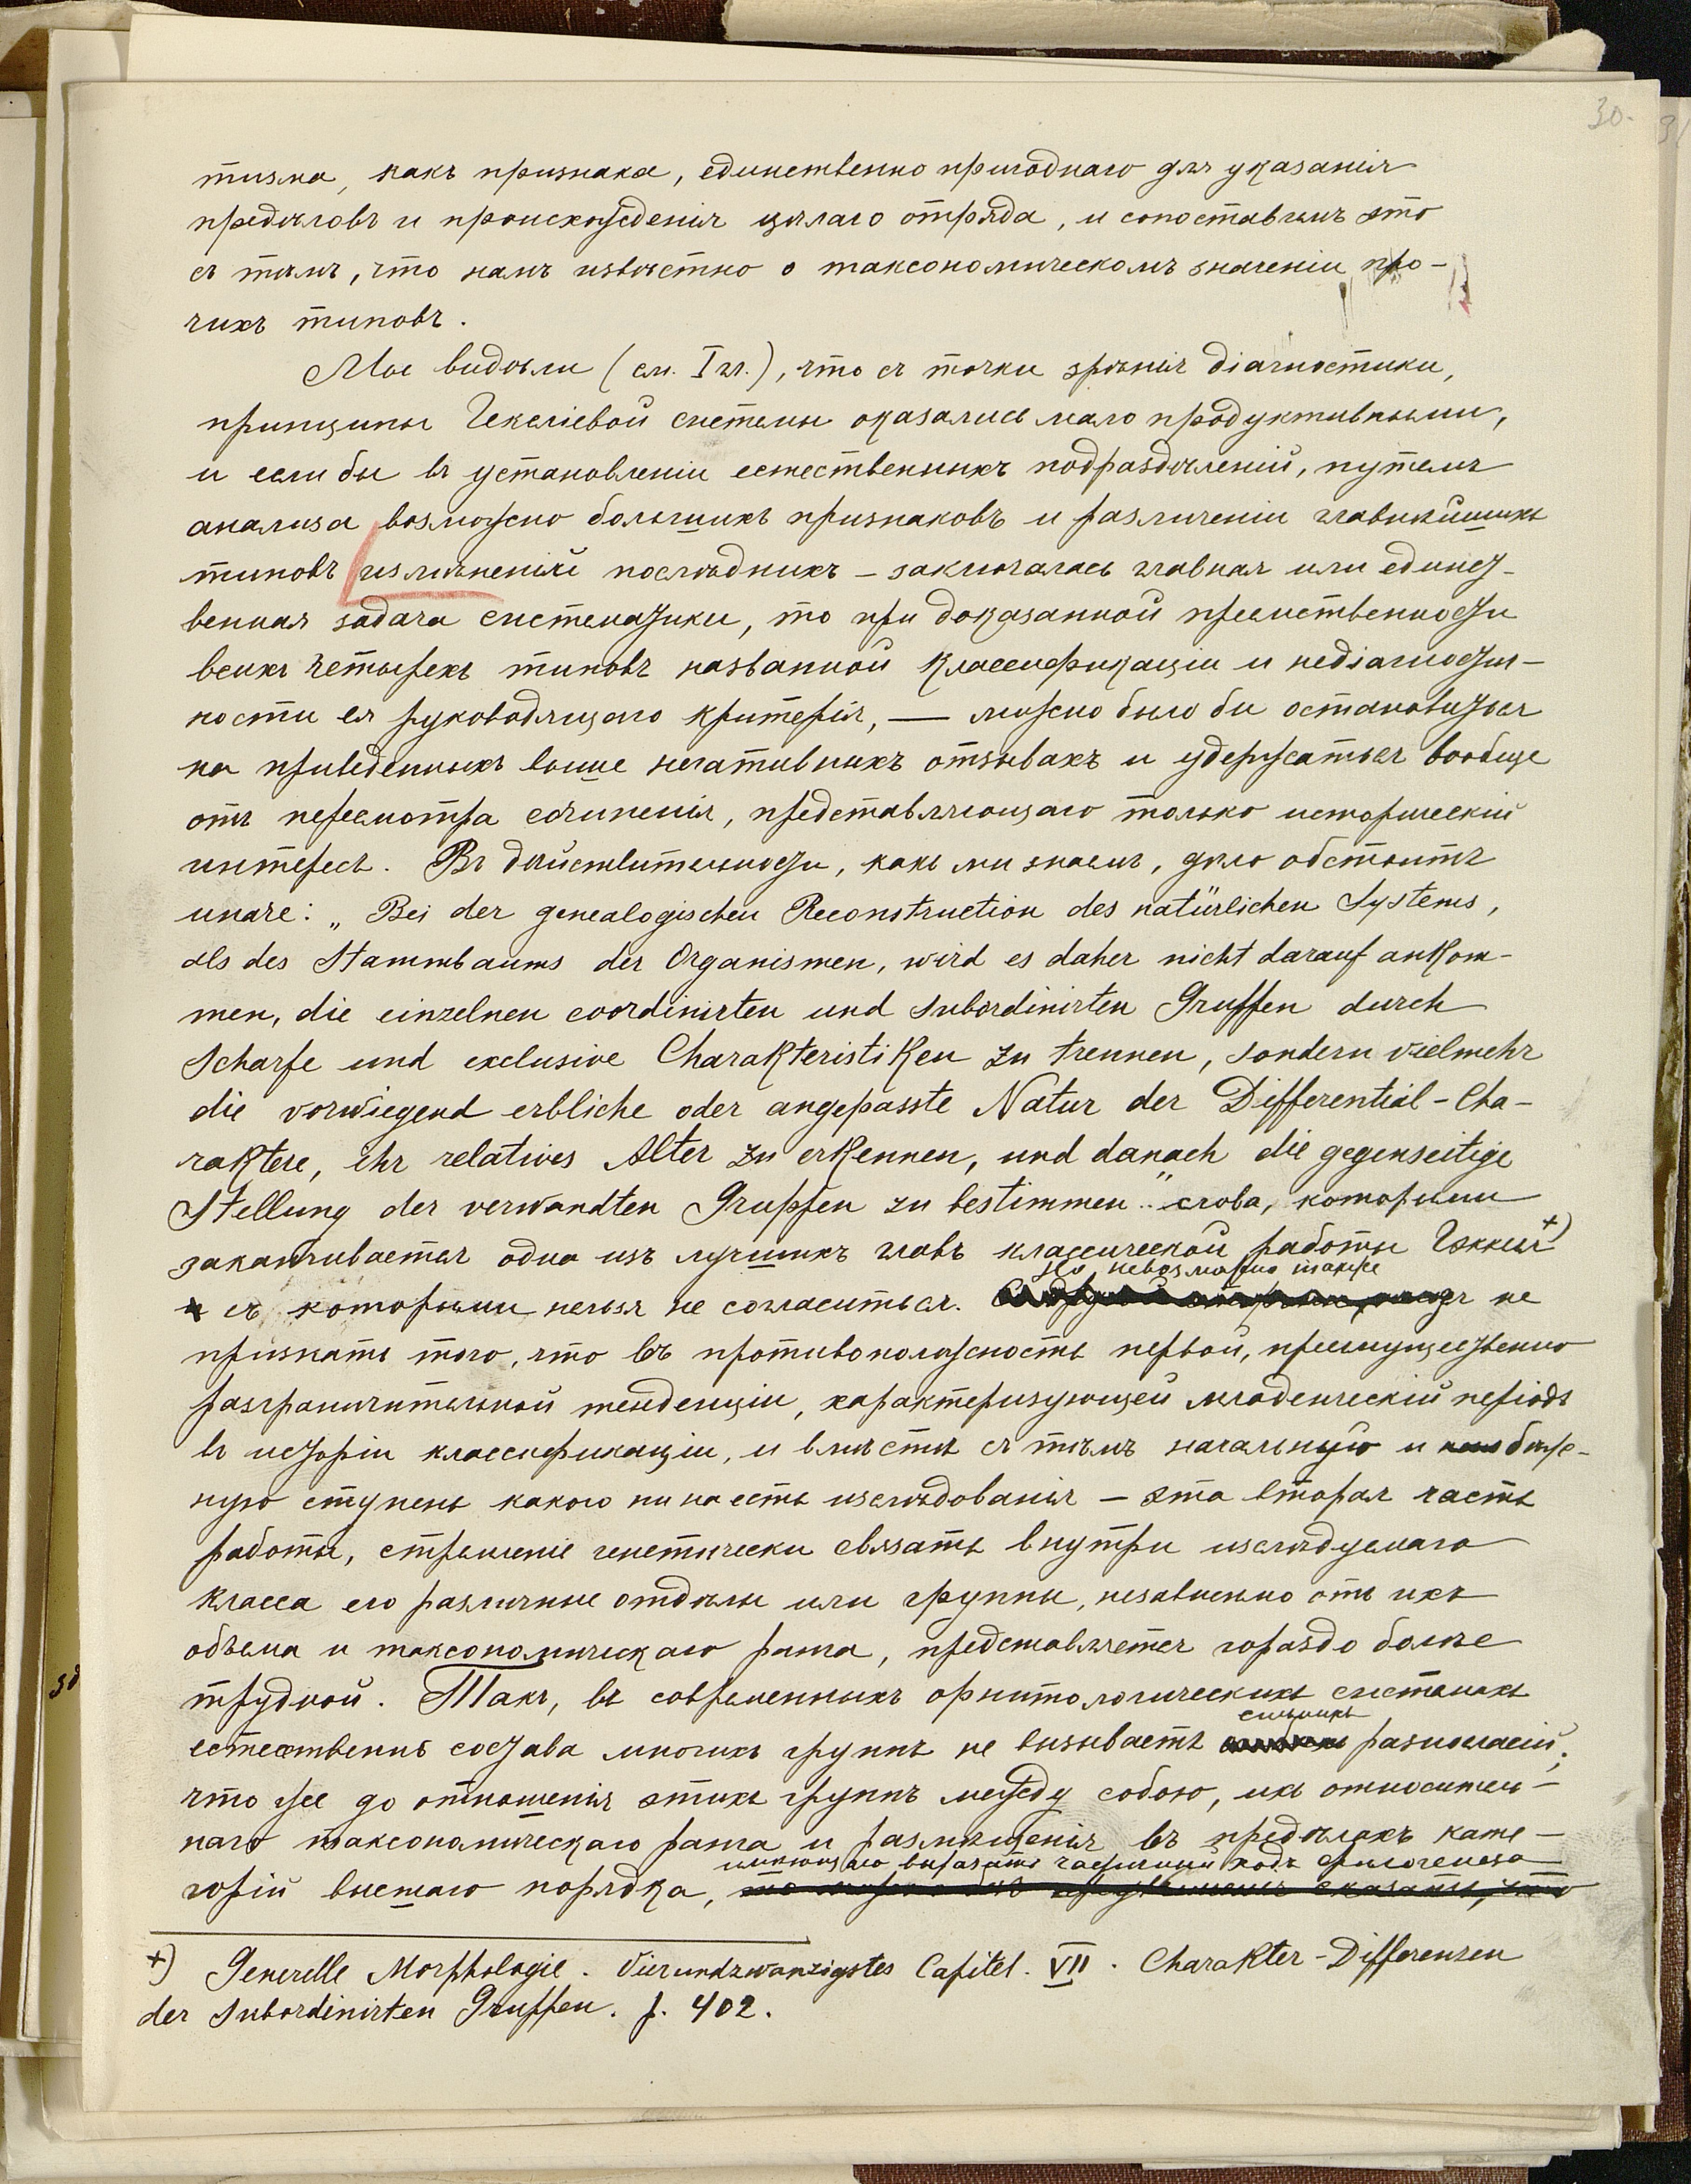 30.
тизма, какъ признака, единственно пригоднаго для указанія
предѣловъ и происхожденія цѣлаго отряда, и сопоставимъ это
съ тѣмъ, что намъ извѣстно о таксономическомъ значеніи про-
чихъ типовъ.
Мы видѣли (см. I гл.), что съ точки зрѣнія діагностики,
принципы Гексліевой системы оказались мало продуктивными,
и если бы въ установленіи естественныхъ подраздѣленій, путемъ
анализа возможно большихъ признаковъ и различеніи главнѣйшихъ
типовъ измѣненій послѣднихъ – заключалась главная или единст-
венная задача систематики, то при доказанной преемственности
всихъ четырехъ типовъ названной классификаціи и недіагностич-
ности ея руководящаго критерія, — можно было бы остановиться
на приведенныхъ выше негативныхъ отзывахъ и удержаться вообще
отъ пересмотра сочиненія, представляющаго только историческій
интересъ. Въ дѣйствительности, какъ мы знаемъ, дѣло обстоитъ
иначе: „Bei der genealogischen Reconstruction des natürlichen Systems,
als des Stammbaums der Organismen, wird es daher nicht darauf ankom-
men, die einzelnen coordinirten und subordinirten Gruppen durch
scharfe und exclusive Charakteristiken zu trennen, sondern vielmehr
die vorwiegend erbliche oder angepasste Natur der Differential-Cha-
raktere, ihr relatives Alter zu erkennen, und danach die gegenseitige
Stellung der verwandten Gruppen zu bestimmen".. слова, которыми
заканчивается одна изъ лучшихъ главъ классической работы Геккеля +)
Но невозможно также
съ которыми нельзя не согласиться. не
признать того, что въ противоположность первой, преимущественно
разграничительной тенденціи, характеризующей младенческій періодъ
въ исторіи классификаціи, и вмѣстѣ съ тѣмъ начальную и
ную ступень какого ни на есть изслѣдованія – эта вторая часть
работы, стремленіе генетически связать внутри изслѣдуемаго
класса его различные отдѣлы или группы, независимо отъ ихъ
объема и таксономическаго ранга, представляется гораздо болѣе
трудной. Такъ, въ современныхъ орнитологическихъ системахъ
сильныхъ
естественнѣ состава многихъ группъ не вызываетъ разногласій;
что же до отношенія этихъ группъ между собою, ихъ относитель-
наго таксономическаго ранга и размѣщенія въ предѣлахъ кате-
имѣющаго выразить ходъ филогенеза
горій высшаго порядка,
+) Generelle Morphologie. Vierundzwanzigstes Capitel. VII. Charakter-Differenzen
der subordinirten Gruppen. p. 402.